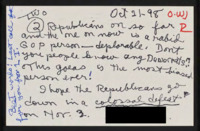 TWO Oct 21-98 O-WJ
② Republicans on so far R
and the me on now is a rabid
G O P person — deplorable. Don't
you people know any Democrats?
This goes is the most biased
person ever!
I hope the Republicans go
down in a colossal defeat
on Nov. 3.